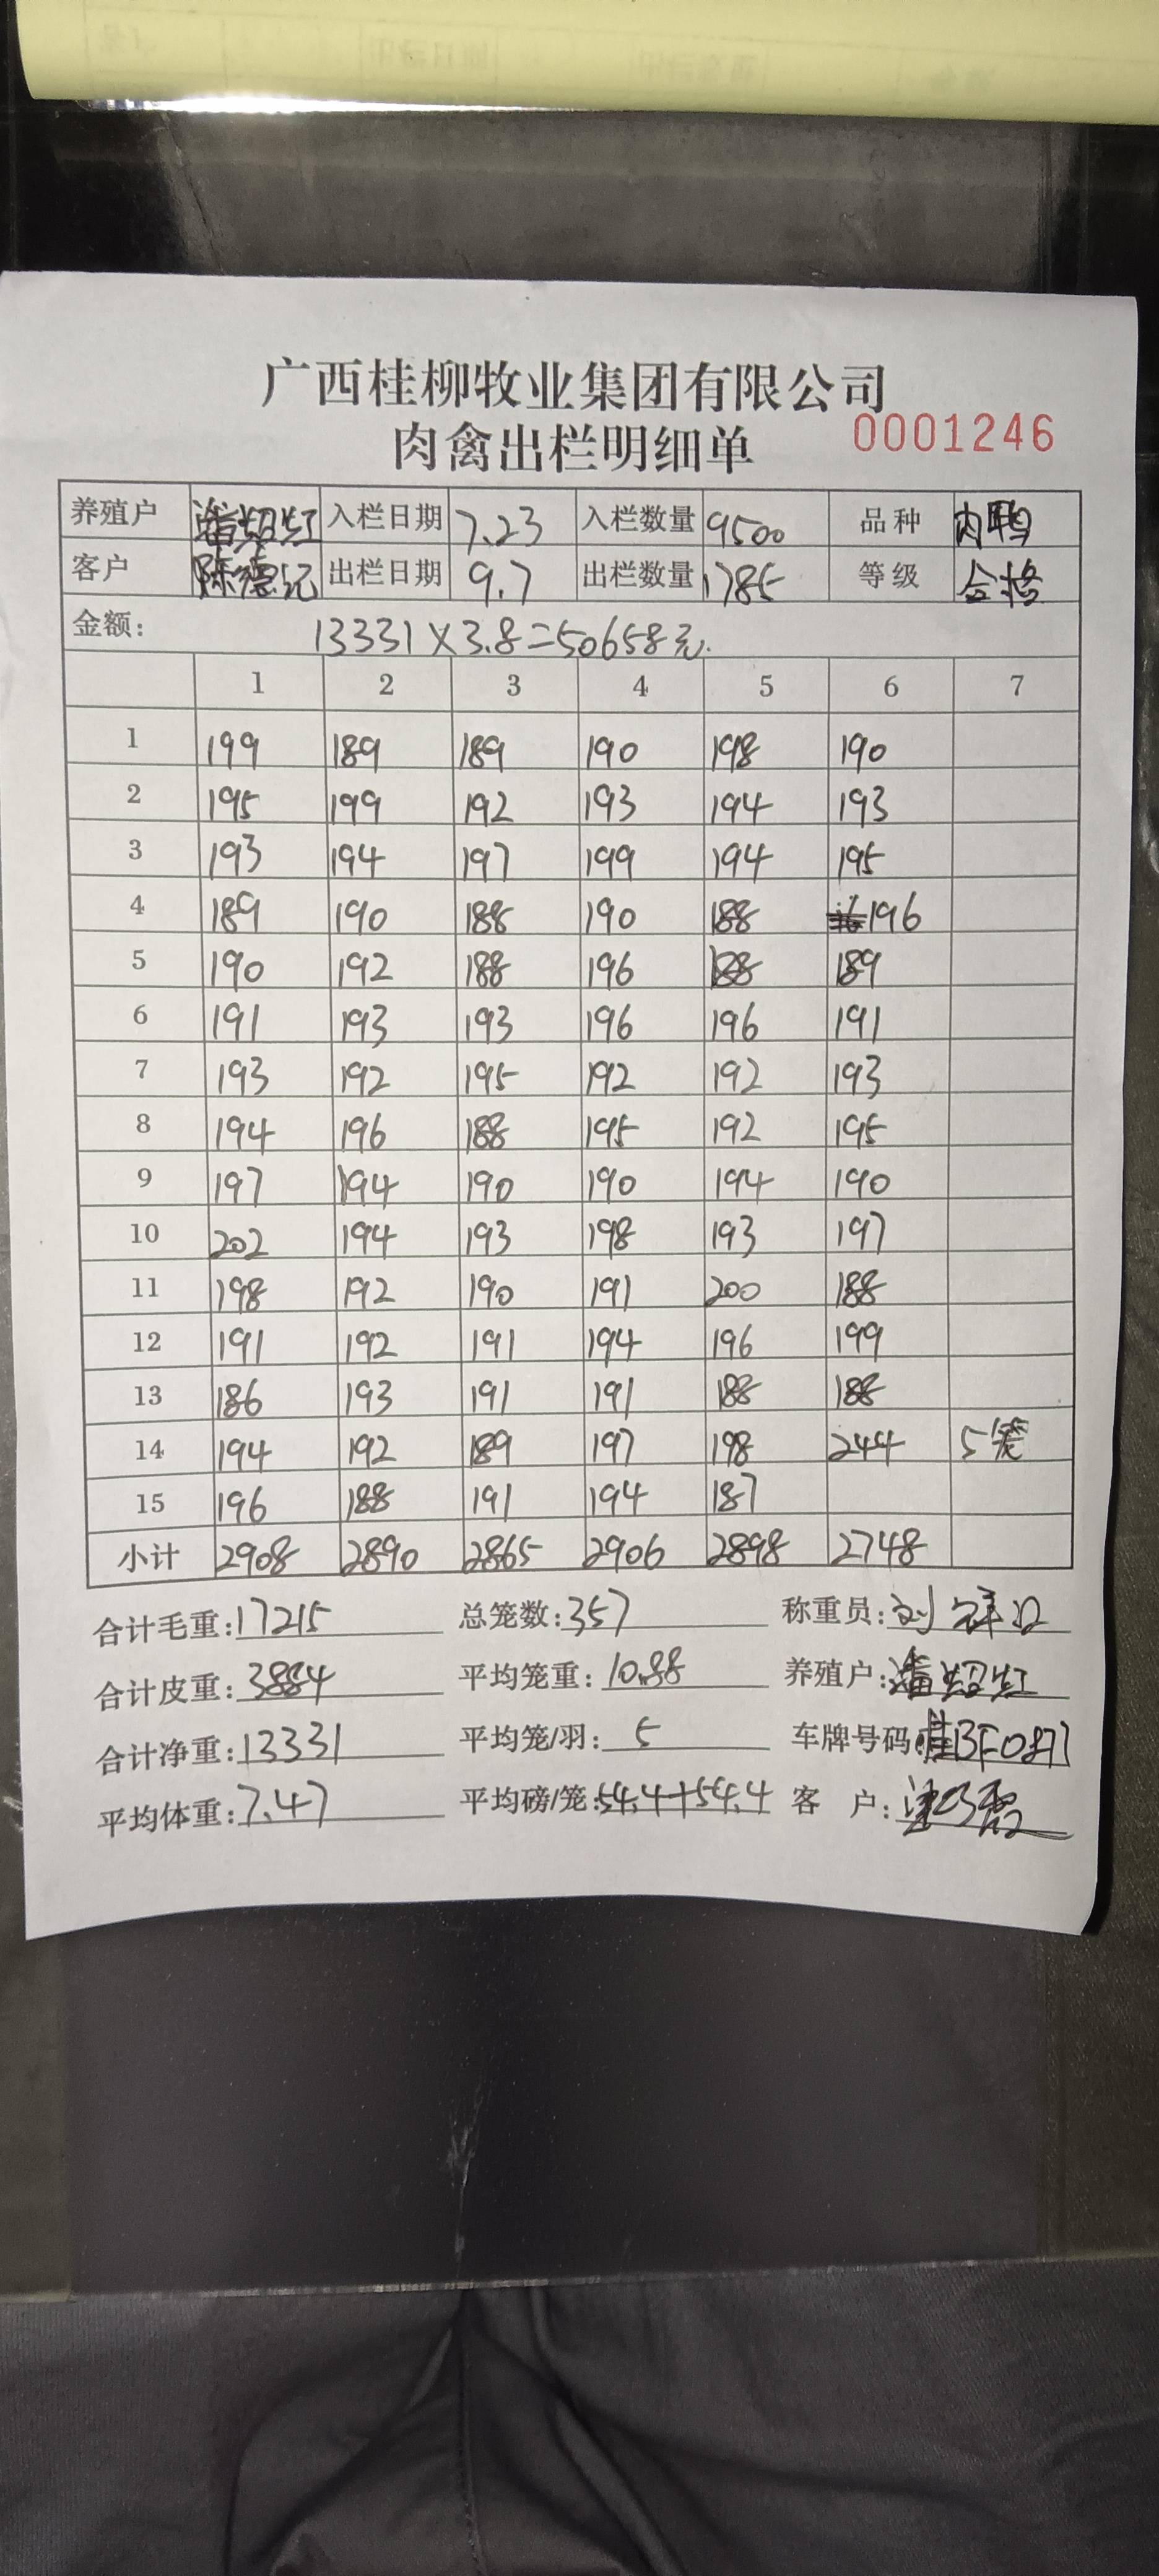 广西桂柳牧业集团有限公司
肉禽出栏明细单 0001246
养殖户 潘绍红 入栏日期 7.23 入栏数量 9500 品种 肉鸭
客户 陈德记 出栏日期 9.7 出栏数量 1785 等级 合格
金额: 13331×3.8=50658元.
1 2 3 4 5 6 7
1 199 189 189 190 198 190
2 195 199 192 193 194 193
3 193 194 197 199 194 195
4 189 190 188 190 188 196
5 190 192 188 196 188 189
6 191 193 193 196 196 191
7 193 192 195 192 192 193
8 194 196 188 195 192 195
9 197 194 190 190 194 190
10 202 194 193 198 193 197
11 198 192 190 191 200 188
12 191 192 191 194 196 199
13 186 193 191 191 188 188
14 194 192 189 197 198 244 5笼
15 196 188 191 194 187
小计 2908 2890 2865 2906 2898 2748
合计毛重:17215 总笼数:357 称重员:刘
合计皮重:3884 平均笼重:10.88 养殖户:潘绍红
合计净重:13331 平均笼/羽:5 车牌号码:
平均体重:7.47 平均磅/笼:54.4+54.4 客 户: